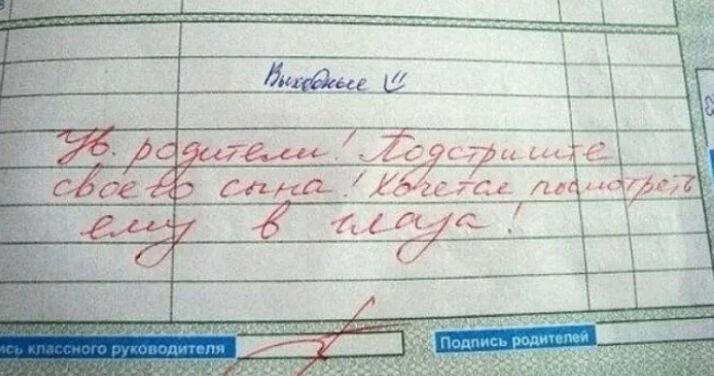 Выходные
Ув. родители! Подстригите
своего сына! Хочется посмотреть
ему в глаза!
классного руководителя
Подпись родителей